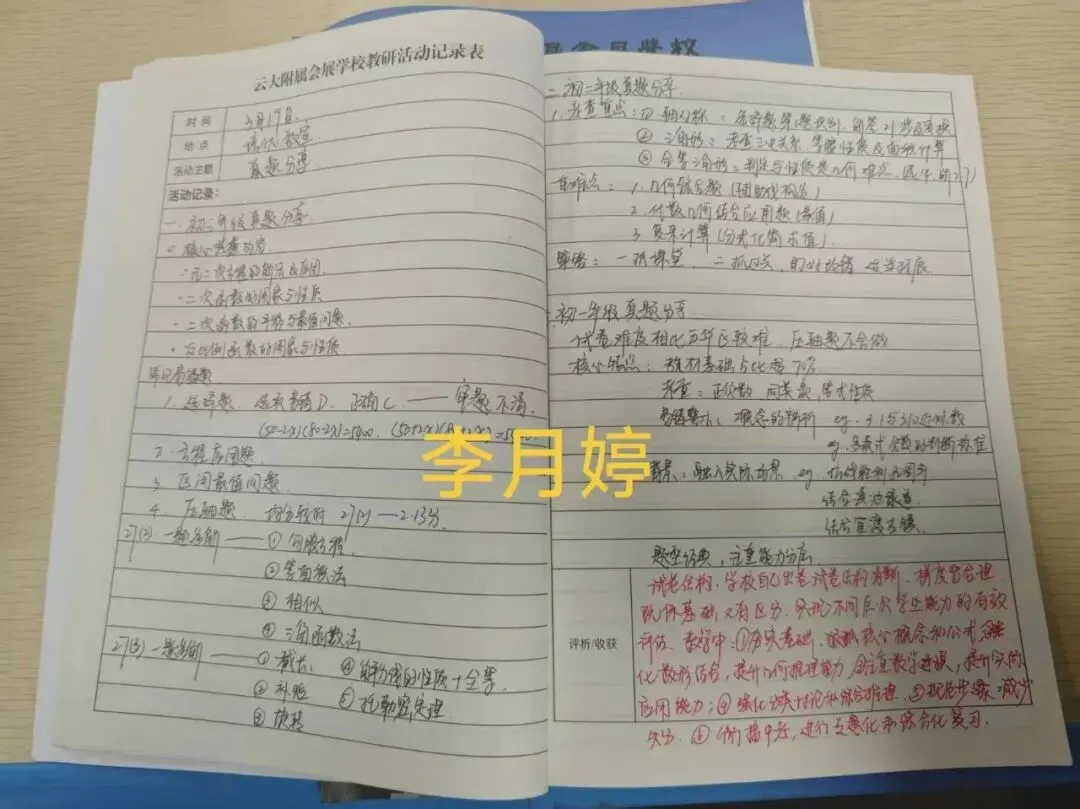 云大附属会展学校教研活动记录表
时间 3月17日.
地点
活动主题 真题分享
活动记录:
一. 初三年级真题分享.
① 核心考查内容
·一元二次方程的解法及应用
·二次函数的图象与性质
·二次函数的平移与最值问题.
·反比例函数的图象与性质
常见易错题
1. 选择题. 选项易错D. 正确C. —— 审题不清.
(50-2x)(80-2x)=5400.
2. 方程应用题.
3. 区间最值问题.
4. 压轴题. 均分较时 27(2) — 2.13分.
27(2) 一题多解 —— ① 勾股方程.
② 等面积法
③ 相似
④ 三角函数法
27(3) 一题多解 —— ① 截长. ④ 角平分线的性质+全等.
② 补短 ⑤ 托勒密定理.
③ 旋转
李月婷
二. 初二年级真题分享.
1. 考查重点: ① 轴对称: 选择题第1题识别. 解答21涉及变换
② 三角形: 考查三边关系. 等腰性质及面积计算
③ 全等三角形: 判定与性质是几何难点.
重难点: 1. 几何综合题 (辅助线构造)
2. 代数几何结合应用题 (最值)
3. 复杂计算 (分式化简求值).
策略: 一抓课堂, 二抓过关,
三. 初一年级真题分享.
试卷难度相比五华区较难. 压轴题不会做
核心特点: 教材基础占比超70%
考查: 正负数 同类项. 等式性质
易错警示: 概念的辨析 eg.
eg. 多项式次数的判断标准
背景: 融入实际场景 eg. 抗战胜利
结合滇池
结合官渡古镇.
题型经典, 注重能力分层
评析/收获
试卷结构. 学校自己出卷. 试卷结构清晰. 梯度皆合理
既保基础, 又有区分. 实现不同层次学生能力的有效
评估. 教学中: ①夯实基础. 紧抓核心概念和公式. ②强
化数形结合, 提升几何推理能力, ③注重数学建模, 提升实际
应用能力; ④ 强化分类讨论和综合推理. ⑤规范步骤. 减少
失分. ⑥ 衔接中考, 进行专题化和综合化复习.